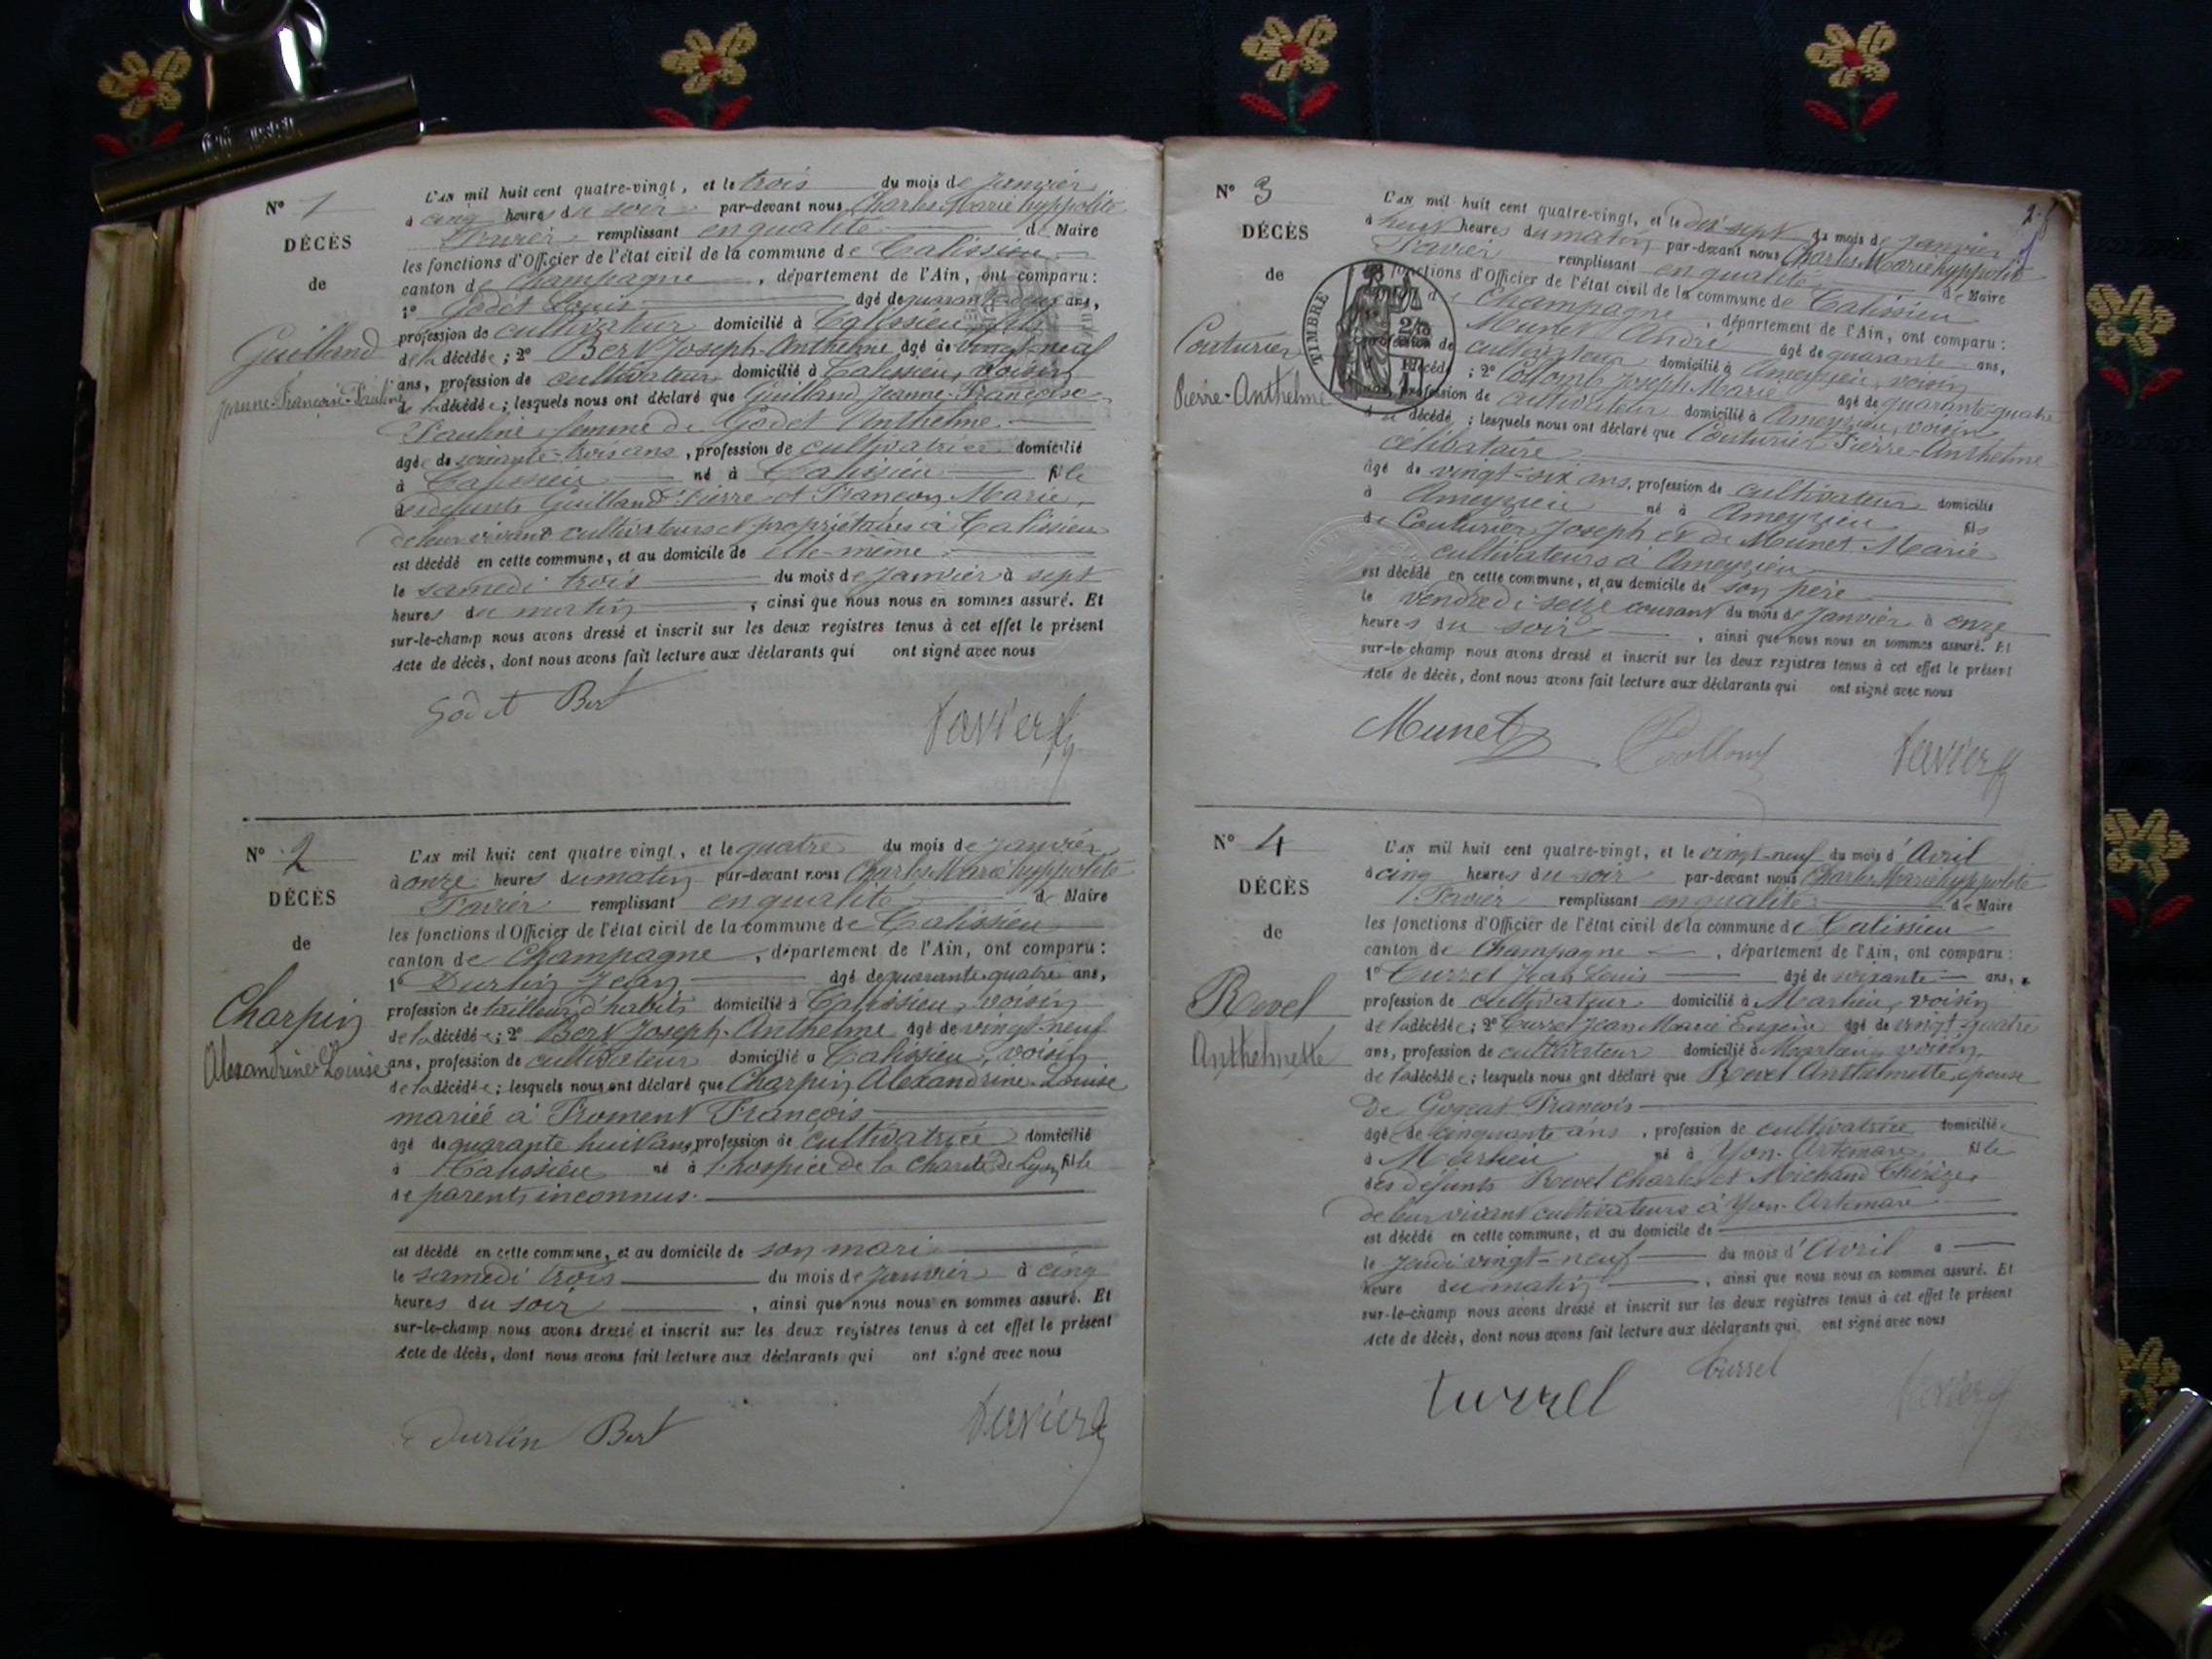 N° 1
DÉCÈS
de
Guilland
Jeanne-Françoise-Pauline
L'AN mil huit cent quatre-vingt, et le trois du mois de janvier
à cinq heures du soir par-devant nous Charles Marie hyppolite
Favier remplissant en qualité de Maire
les fonctions d'Officier de l'état civil de la commune de Talissieu
canton de Champagne, département de l'Ain, ont comparu:
1° Godet Louis âgé de quarante-deux ans,
profession de cultivateur domicilié à Talissieu, fils
de la décédée; 2° Bert Joseph-Anthelme âgé de vingt-neuf
ans, profession de cultivateur domicilié à Talissieu, voisin
de la décédée; lesquels nous ont déclaré que Guilland Jeanne-Françoise
Pauline femme de Godet Anthelme
âgée de soixante-trois ans, profession de cultivatrice domicilié
à Talissieu né à Talissieu fille
de défunts Guilland Pierre et Françon Marie,
de leur vivant cultivateurs et propriétaires à Talissieu
est décédé en cette commune, et au domicile de elle-même
le samedi trois du mois de janvier à sept
heures du matin, ainsi que nous nous en sommes assuré. Et
sur-le-champ nous avons dressé et inscrit sur les deux registres tenus à cet effet le présent
Acte de décès, dont nous avons fait lecture aux déclarants qui ont signé avec nous
Godet Bert Favier
N° 2
DÉCÈS
de
Charpin
Alexandrine-Louise
L'AN mil huit cent quatre vingt, et le quatre du mois de janvier
à onze heures du matin par-devant nous Charles Marie hyppolite
Favier remplissant en qualité de Maire
les fonctions d'Officier de l'état civil de la commune de Talissieu
canton de Champagne, département de l'Ain, ont comparu:
1° Durlin Jean âgé de quarante-quatre ans,
profession de tailleur d'habits domicilié à Talissieu, voisin
de la décédée; 2° Bert Joseph-Anthelme âgé de vingt-neuf
ans, profession de cultivateur domicilié à Talissieu, voisin
de la décédée; lesquels nous ont déclaré que Charpin Alexandrine-Louise
mariée à Froment François
âgé de quarante huit ans, profession de cultivatrice domicilié
à Talissieu né à l'hospice de la Charité de Lyon, fille
de parents inconnus.
est décédé en cette commune, et au domicile de son mari
le samedi trois du mois de janvier à cinq
heures du soir, ainsi que nous nous en sommes assuré. Et
sur-le-champ nous avons dressé et inscrit sur les deux registres tenus à cet effet le présent
Acte de décès, dont nous avons fait lecture aux déclarants qui ont signé avec nous
Durlin Bert Favier
N° 3
DÉCÈS
de
Couturier
Pierre-Anthelme
TIMBRE
L'AN mil huit cent quatre-vingt, et le dix-sept du mois de janvier
à huit heures du matin par-devant nous Charles Marie hyppolite
Favier remplissant en qualité de Maire
fonctions d'Officier de l'état civil de la commune de Talissieu
de Champagne, département de l'Ain, ont comparu:
Munet André âgé de quarante ans,
profession de cultivateur domicilié à Ameyzieu, voisin
décédé; 2° Collomb Joseph-Marie âgé de quarante-quatre
profession de cultivateur domicilié à Ameyzieu, voisin
décédé; lesquels nous ont déclaré que Couturier Pierre-Anthelme
célibataire
âgé de vingt-six ans, profession de cultivateur domicilié
à Ameyzieu né à Ameyzieu fils
de Couturier Joseph et de Munet Marie
cultivateurs à Ameyzieu
est décédé en cette commune, et au domicile de son père
le vendredi seize courant du mois de janvier à onze
heures du soir, ainsi que nous nous en sommes assuré. Et
sur-le-champ nous avons dressé et inscrit sur les deux registres tenus à cet effet le présent
Acte de décès, dont nous avons fait lecture aux déclarants qui ont signé avec nous
Munet Collomb Favier
N° 4
DÉCÈS
de
Revel
Anthelmette
L'AN mil huit cent quatre-vingt, et le vingt-neuf du mois d'Avril
à cinq heures du soir par-devant nous Charles Marie hyppolite
Favier remplissant en qualité de Maire
les fonctions d'Officier de l'état civil de la commune de Talissieu
canton de Champagne, département de l'Ain, ont comparu:
1° Turrel Jean Louis âgé de soixante ans,
profession de cultivateur domicilié à Marlieu, voisin
de la décédée; 2° Turrel Jean Marie Eugène âgé de vingt quatre
ans, profession de cultivateur domicilié à Marlieu, voisin
de la décédée; lesquels nous ont déclaré que Revel Anthelmette, épouse
De Gogeat François
âgée de cinquante ans, profession de cultivatrice domiciliée
à Marlieu né à Yon-Artemare fille
des défunts Revel Charles et Michaud Thérèze
de leur vivant cultivateurs à Yon-Artemare
est décédé en cette commune, et au domicile de
le jeudi vingt-neuf du mois d'Avril à
heure du matin, ainsi que nous nous en sommes assuré. Et
sur-le-champ nous avons dressé et inscrit sur les deux registres tenus à cet effet le présent
Acte de décès, dont nous avons fait lecture aux déclarants qui ont signé avec nous
turrel Turrel Favier